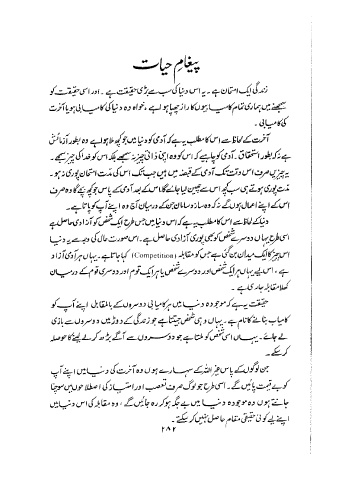 پیغامِ حیات
زندگی ایک امتحان ہے۔ یہ اس دنیا کی سب سے بڑی حقیقت ہے۔ اور اسی حقیقت کو
سمجھنے میں ہماری تمام کامیابیوں کا راز چھپا ہوا ہے، خواہ وہ دنیا کی کامیابی ہو یا آخرت
کی کامیابی۔
آخرت کے لحاظ سے اس کا مطلب یہ ہے کہ آدمی کو دنیا میں جو کچھ ملا ہوا ہے وہ بطور آزمائش
ہے نہ کہ بطور استحقاق۔ آدمی کو چاہیے کہ اس کو وہ اپنی ذاتی چیز نہ سمجھے بلکہ اس کو خدا کی چیز سمجھے۔
یہ چیزیں صرف اس وقت تک آدمی کے قبضہ میں ہیں جب تک اس کی مدت امتحان پوری نہ ہو۔
مدت پوری ہوتے ہی سب کچھ اس سے چھین لیا جائے گا اس کے بعد آدمی کے پاس جو کچھ بچے گا وہ صرف
اس کے اپنے اعمال ہوں گے نہ کہ وہ ساز و سامان جن کے درمیان آج وہ اپنے آپ کو پاتا ہے۔
دنیا کے لحاظ سے اس کا مطلب یہ ہے کہ اس دنیا میں جس طرح ایک شخص کو آزادی حاصل ہے
اسی طرح یہاں دوسرے شخص کو بھی پوری آزادی حاصل ہے۔ اس صورت حال کی وجہ سے یہ دنیا
اس چیز کا ایک میدان بن گئی ہے جس کو مقابلہ (Competition) کہا جاتا ہے۔ یہاں ہر آدمی آزاد
ہے، اس لیے یہاں ہر ایک شخص اور دوسرے شخص یا ہر ایک قوم اور دوسری قوم کے درمیان
کھلا مقابلہ جاری ہے۔
حقیقت یہ ہے کہ موجودہ دنیا میں ہر کامیابی دوسروں کے بالمقابل اپنے آپ کو
کامیاب بنانے کا نام ہے۔ یہاں وہی شخص جیتتا ہے جو زندگی کے دوڑ میں دوسروں سے بازی
لے جائے۔ یہاں اسی شخص کو ملتا ہے جو دوسروں سے آگے بڑھ کر لے لینے کا حوصلہ
کر سکے۔
جن لوگوں کے پاس غیر اللہ کے سہارے ہوں وہ آخرت کی دنیا میں اپنے آپ
کو بے قیمت پائیں گے۔ اسی طرح جو لوگ صرف تعصب اور امتیاز کی اصطلاحوں میں سوچنا
جانتے ہوں وہ موجودہ دنیا میں بے جگہ ہو کر رہ جائیں گے، وہ مقابلہ کی اس دنیا میں
اپنے لیے کوئی حقیقی مقام حاصل نہیں کر سکتے۔
۲۸۲